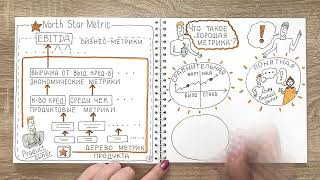 North Star Metric
EBITDA
БИЗНЕС-МЕТРИКИ
ВЫРУЧКА ОТ ВЫД. КРЕД-В
ЭКОНОМИЧЕСКИЕ МЕТРИКИ
К-ВО КРЕД.
СРЕДН. ЧЕК
ПРОДУКТОВЫЕ МЕТРИКИ
ДЕРЕВО МЕТРИК
ПРОДУКТА
ЧТО ТАКОЕ
ХОРОШАЯ
МЕТРИКА?
СРАВНИТЕЛЬНАЯ
МАРТ
МАЙ
БЫЛО
СТАЛО
ПОНЯТНАЯ